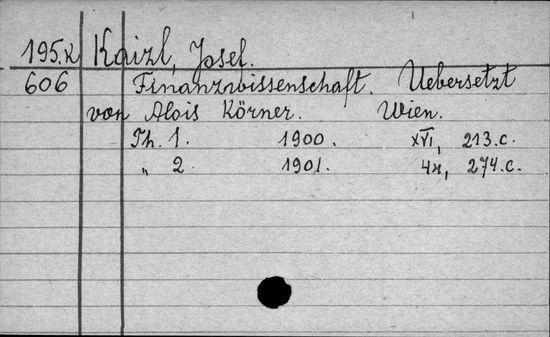 195.K Kaizl, Josef.
606 Finanzwissenschaft. Uebersetzt
von Alois Körner. Wien.
Th. 1. 1900. XVI, 213.c.
„ 2 1901. 4н, 274.c.